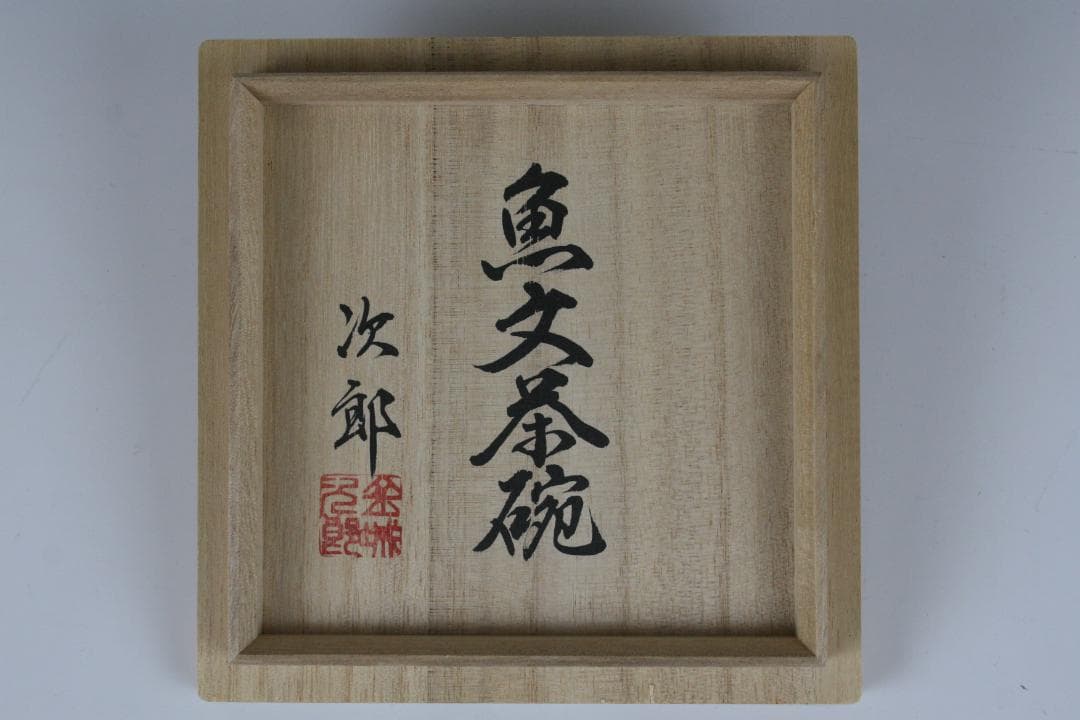 魚文茶碗
次郎
金城
次郎